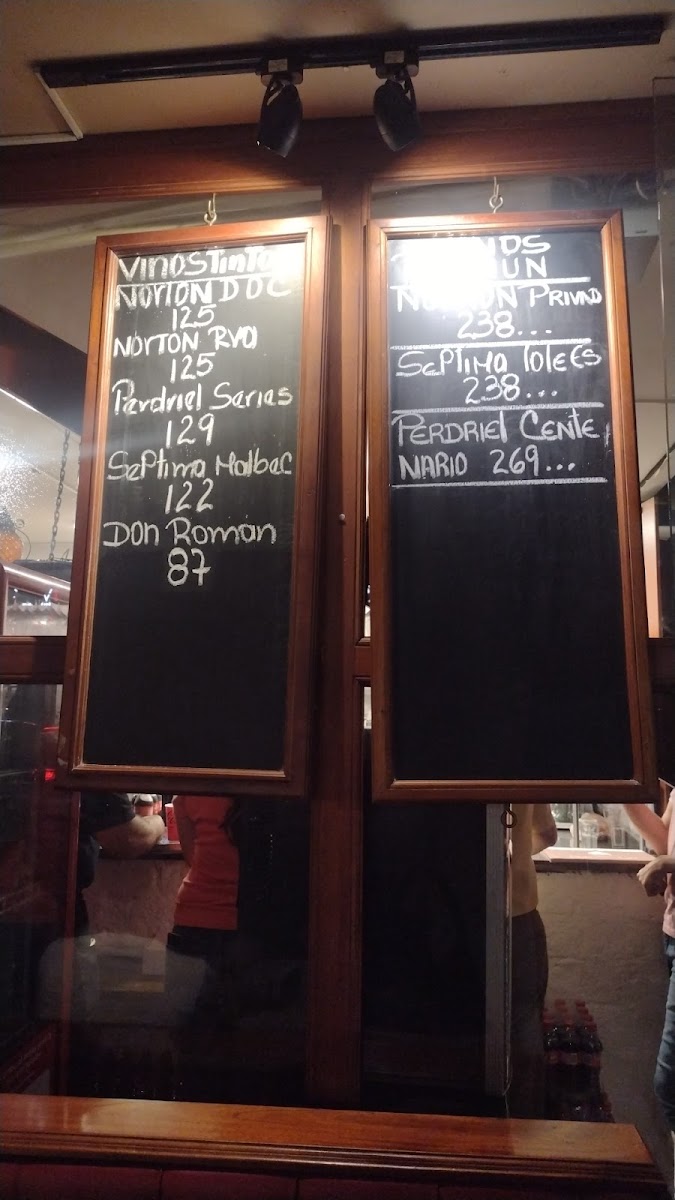 Vinos Tinto
Norton DOC
125
Norton RVA
125
Perdriel Series
129
Septima Malbec
122
Don Román
87
Norton Privad
238...
Septima
238...
Perdriel Cente
nario 269...